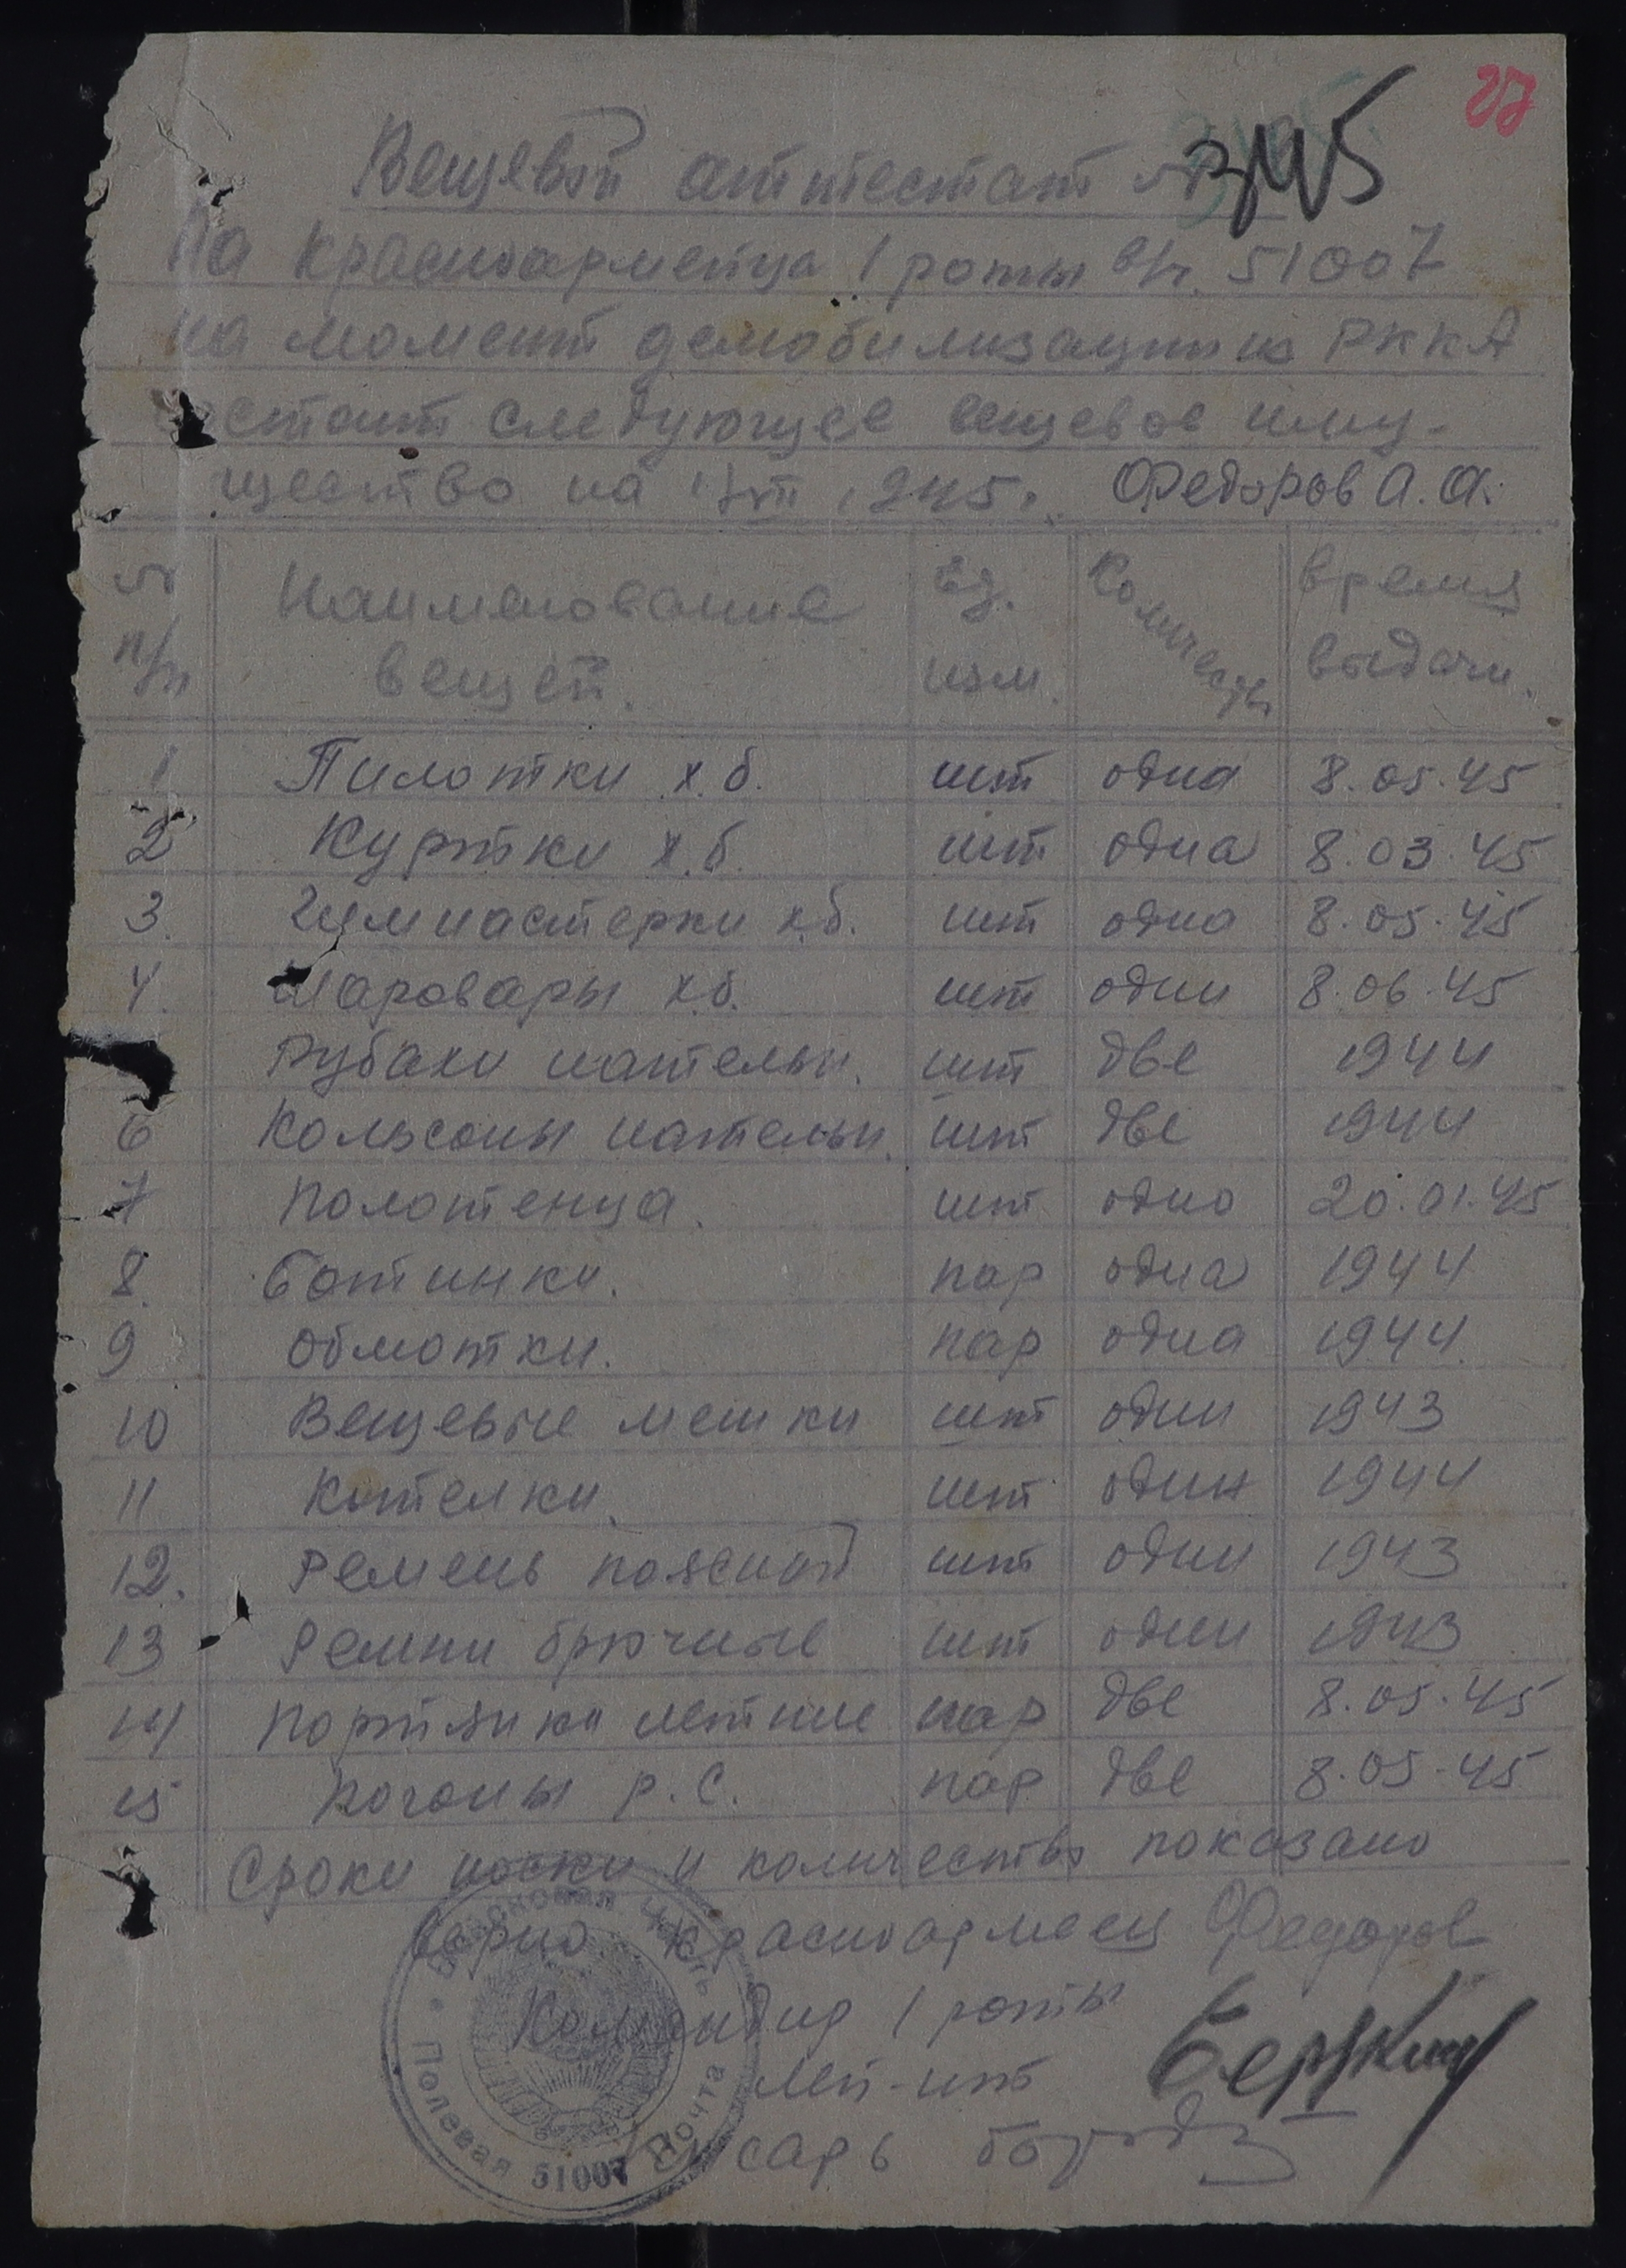 27
Вещевой аттестат № 3145
На красноармейца 1 роты в/ч. 51007
на момент демобилизации из РККА
состоит следующее вещевое иму-
щество на 1945г. Федоров А.А.
№ п/п Наименование вещей. Ед. изм. Количество Время выдачи.
1 Пилотки х.б. шт одна 8.05.45
2 Куртки х.б. шт одна 8.03.45
3. Гимнастерки х.б. шт одна 8.05.45
4. Шаровары х.б. шт одни 8.06.45
Рубахи нательн. шт две 1944
6 Кольсоны нательн. шт две 1944
7 Полотенца. шт одно 20.01.45
8. Ботинки. пар одна 1944
9 Обмотки. пар одна 1944.
10 Вещевые мешки шт один 1943
11 Котелки. шт один 1944
12. Ремень поясной шт один 1943
13 Ремни брючные шт один 1943
14 Портянки летние пар две 8.05.45
15 Погоны р.с. пар две 8.05.45
Сроки носки и количество показано
верно красноармеец Федоров
Командир 1 роты
Лей-нт
Писарь
Войсковая часть
Полевая почта
51007